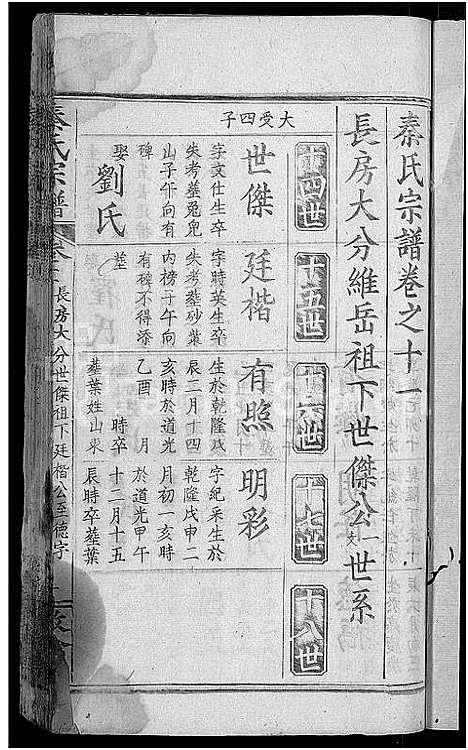 秦氏宗譜卷之十一
長房大分維岳祖下世傑公一支世系
十四世
十五世
十六世
十七世
十八世
大受四子
世傑
字文仕生卒
失考塟兎兒
山子午向有
碑
娶劉氏
塟
廷楷
字時英生卒
失考塟砂葉
内榜子午向
有碑不得添
塟
有照
生於乾隆戊
辰二月十四
亥時於道光
乙酉 月
時卒
塟葉姓山東
明彩
字紀采生於
乾隆戊申二
月初一亥時
於道光甲午
十二月十五
辰時卒塟葉
秦氏宗譜
長房大分世傑祖下 廷楷公至德字